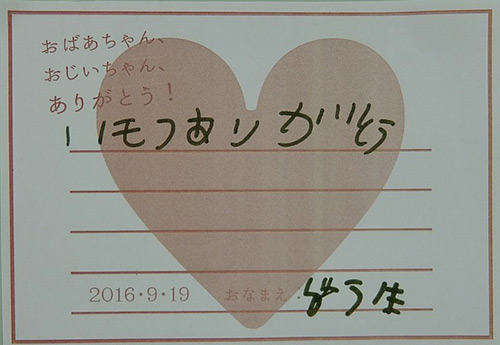 おばあちゃん、
おじいちゃん、
ありがとう！
いもつありがとう
2016・9・19 おなまえ・